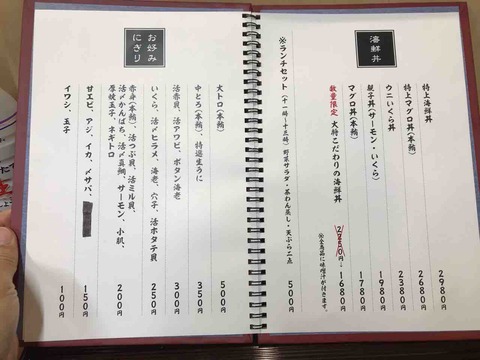 海鮮丼
特上海鮮丼 2980円
特上マグロ丼(本鮪) 2680円
ウニいくら丼 2380円
親子丼(サーモン・いくら) 1980円
マグロ丼(本鮪) 1780円
数量限定 大将こだわりの海鮮丼 2850円→1680円
※全商品に味噌汁が付きます。
※ランチセット(十一時~十三時)野菜サラダ・茶わん蒸し・天ぷら二点 500円
お好み
にぎり
大トロ(本鮪) 500円
中とろ(本鮪)、特選生うに 350円
活赤貝、活アワビ、ボタン海老 300円
いくら、活〆ヒラメ、海老、穴子、活ホタテ貝 250円
赤身(本鮪)、活つぶ貝、活ミル貝、
活〆かんぱち、活〆真鯛、サーモン、小肌、
厚焼玉子、ネギトロ 200円
甘エビ、アジ、イカ、〆サバ、 150円
イワシ、玉子 100円